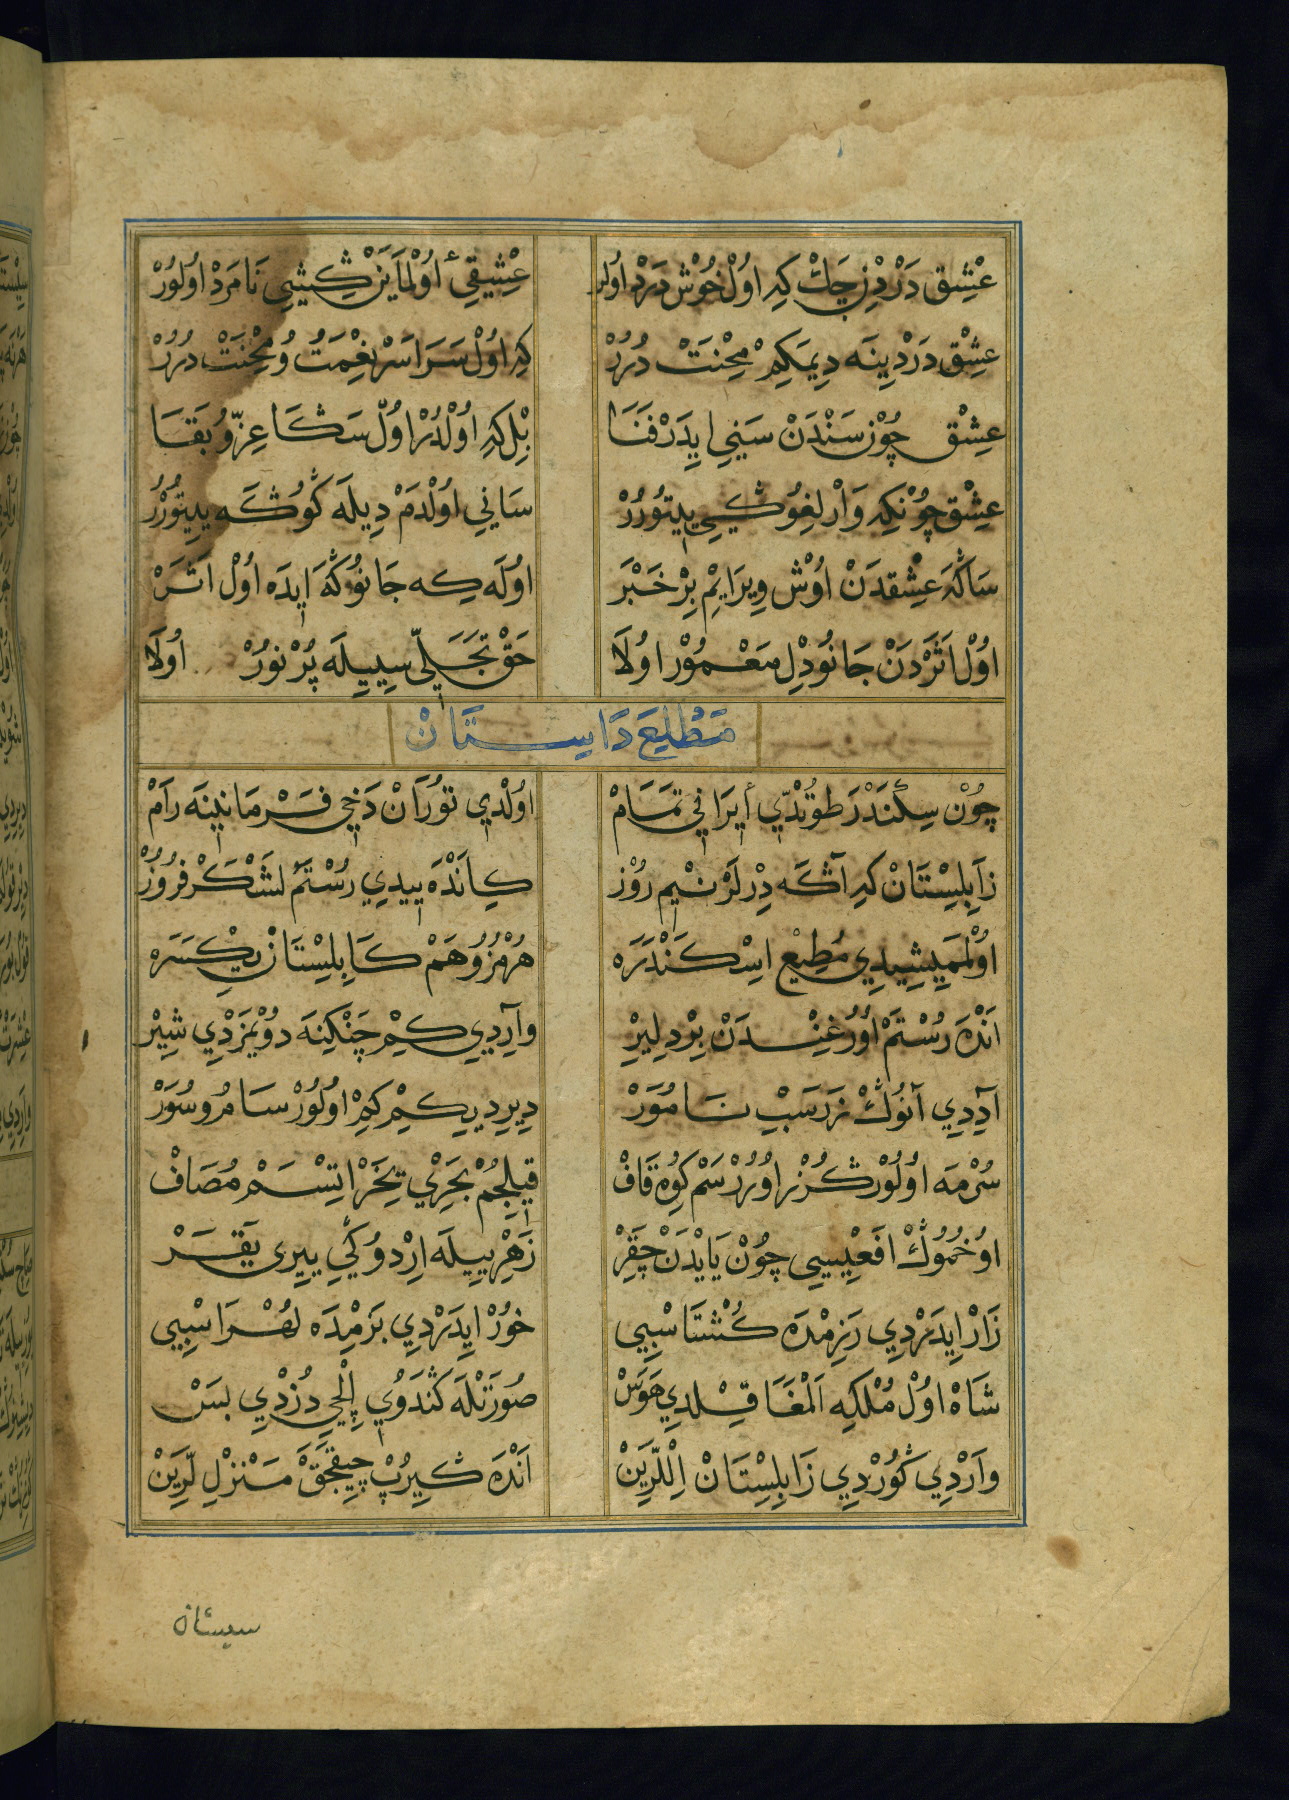 عِشْق دَرْدِنِ چَكْ كِه اوُلْ خُوشْ دَرْد اوُلر عِشِيقِي أوُلْمَايَنْ كِشِيِ نَامَرْدْ اوُلوُرْ
عِشْق دَرْدِينَه دِيمَكِمْ مِحْنَتْ دُرُرْ كِه اوُلْ سَرَاسَرْ نِعْمَتُ وُ مِحْنَتْ دُرُرْ
عِشْق چُونْ سَنْدَنْ سَنِي ايِدَرْ فَنَا بِلْ كِه اوُلْدُرْ اوُلْ سَڭَا عِزّ وُ بَقَا
عِشْق چُونْكِه وَارْلِغُوڭِي يِيتُورُرْ سَانِي اوُلْدَمْ دِيلَه گوُڭَه يِيتُورُرْ
سَاڭَه عِشْقدَنْ اوُشْ وِيرَايِمْ بِرْ خَبَرْ اوُلَه كِه جَانوُڭَه ايِدَه اوُلْ اَثَرْ
اوُلْ اَثَرْدَنْ جَانوُ دِلْ مَعْموُرْ اوُلَا حَقْ تَجَلِّي سِييِلَه پُرْ نوُرْ اوُلَا
مَطْلَعِ دَاسِتَانْ
چوُنْ سِكَنْدَرْ طوُتْدِي اِيرَانِي تَمَامْ اوُلْدِي توُرَانْ دَخِي فَرْمَانِينَه رَامْ
زَابِلِسْتَانْ كِه آڭَه دِرْلَرْ نِيمِ رُوْز كِانْدَه يِيدِي رُسْتَمِ لَشْكَرْ فُرُوزْ
اوُلْمَمِيشِيدِي مُطِيعْ اِسْكَنْدَرَه هُرْمُزُ وُ هَمْ كَابِلِسْتَانْ يِكْسَرَه
اَنْدَه رُسْتَمْ اوُرُغِنْدَنْ بِرْ دِلِيرْ وآرِدِي كِيمْ چَنْكِنَه دوُيْمَزْدِي شِيرْ
آدِدِي آنوُڭْ زَرَسْبِ نَامْوَرْ دِيرِدِي كِيمْ كِمْ اوُلوُرْ سَامُ وسُوَرْ
سُرْمَه اوُلوُرْ كُرْزِ اوُرُرْسَمْ كوُهِ قَافْ قِيلِجُمْ بَحْرِي اِتْسَمْ مُصَافْ
اوُخُموُڭْ افْعِيسِي چُونْ يَايْدَنْ چِقَرْ زَهْرِييِلَه اِرْدوُكِي يِيرِى يَقَرْ
زَارْ ايِدَرْدِي رَزِمْدَه كُشْتَاسْبِي خوُرْ ايِدَرْدِي بَزْمِدَه لُهْرَاسْبِي
شَاه اوُلْ مُلْكِه اَلْمَغَا قِلْدِي هَوَسْ صوُرَتْلَه كَنْدوُيِ اِلْچِي دُزْدِي بَسْ
وآرْدِي گوُرْدِي زَابِلِسْتَانْ اِللَّرِينْ اَنْدَه گِيرُپْ چِيقَجَقْ مَنْزِلْ لَرِينْ
سيستان